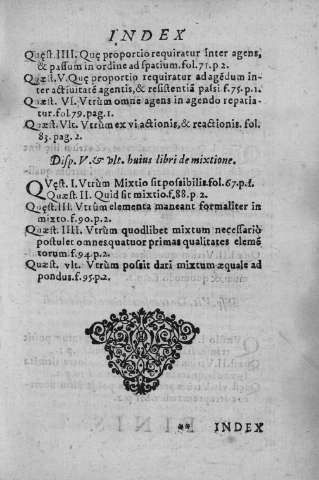 INDEX
Quęst. IIII. Quę proportio requiratur inter agens,
& passum in ordine ad spacium. fol. 71. p 2.
Quæst. V. Que proportio requiratur ad agédum in-
ter actiuitaté agentis, & resistentiã passi f. 75. p 1.
Quæst. VI. Vtrùm omne agens in agendo repatia-
tur. fol 79. pag. 1.
Quæst. Vlt. Vtrùm ex vi, actionis, & reactionis. fol.
83. pag. 2.
Disp. V. & vlt. huius libri de mixtione.
Quęst. I. Vtrùm Mixtio sit possibilis. fol. 67. p. 1.
Quæst II. Quid sit mixtio. f, 88. p 2.
Quęst. III Vtrùm elementa maneant formaliter in
mixto. f. 90. p 2.
Quæst. IIII. Vtrùm quodlibet mixtum necessariò
postulet omnes quatuor primas qualitates elemé
torum f. 94. p 2.
Quæst. vlt. Vtrùm possit dari mixtum æquale ad
pondus. f. 95. p 2.
** INDEX